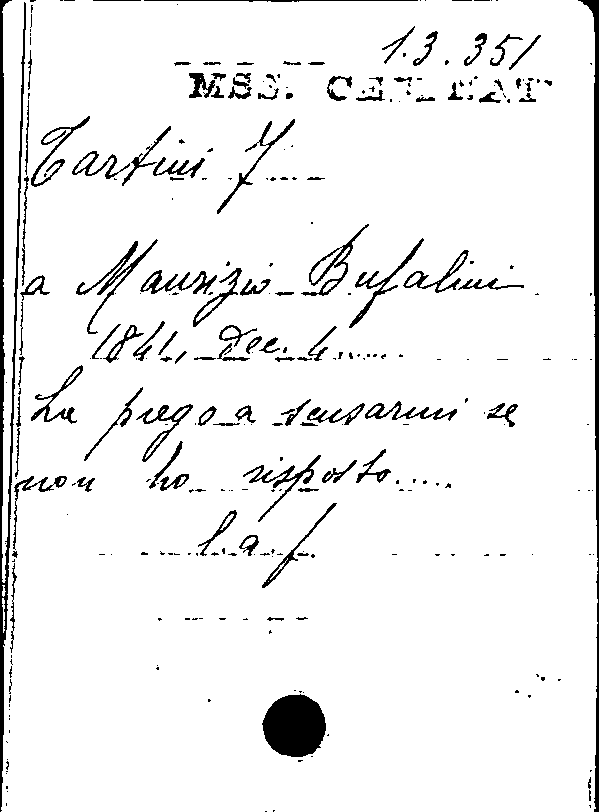 1.3.351
MSS. CENT. NAT
Tartini J
a Maurizio Bufalini
1841, Dec. 4.....
La prego a scusarmi se
non ho risposto.....
l. a f.